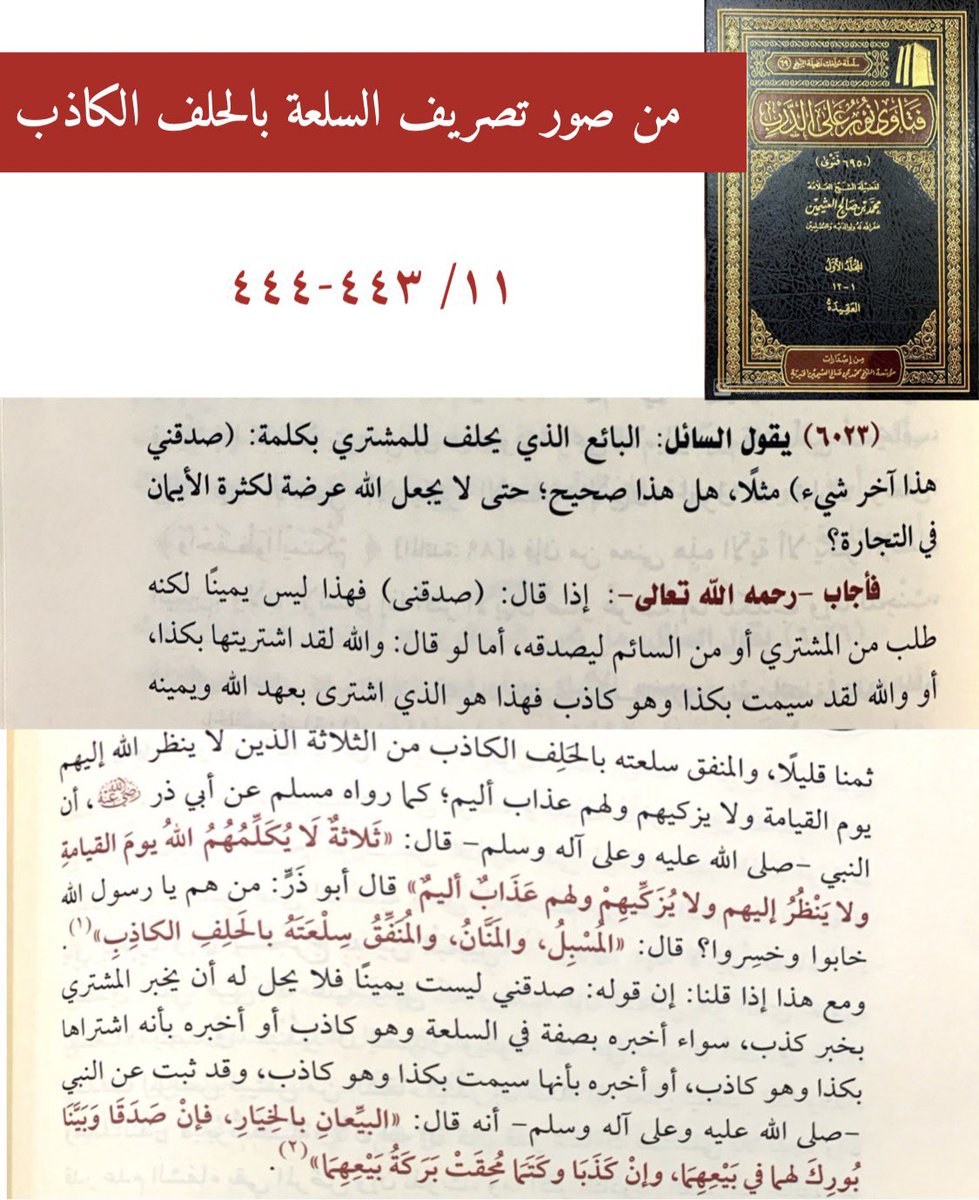 من صور تصريف السلعة بالحلف الكاذب
١١/ ٤٤٣-٤٤٤
سلسلة مؤلفات فضيلة الشيخ (٦٩)
فتاوى نور على الدرب
(٦٩٥٠ فتوى)
لفضيلة الشيخ العلامة
محمد بن صالح العثيمين
غفر الله له ولوالديه وللمسلمين
المجلد الأول
١-١٢
العقيدة
من إصدارات
مؤسسة الشيخ محمد بن صالح العثيمين الخيرية
(٦٠٢٣) يقول السائل: البائع الذي يحلف للمشتري بكلمة: (صدقني
هذا آخر شيء) مثلًا، هل هذا صحيح؛ حتى لا يجعل الله عرضة لكثرة الأيمان
في التجارة؟
فأجاب -رحمه الله تعالى-: إذا قال: (صدقنى) فهذا ليس يمينًا لكنه
طلب من المشتري أو من السائم ليصدقه، أما لو قال: والله لقد اشتريتها بكذا،
أو والله لقد سيمت بكذا وهو كاذب فهذا هو الذي اشترى بعهد الله ويمينه
ثمنا قليلًا، والمنفق سلعته بالحَلِف الكاذب من الثلاثة الذين لا ينظر الله إليهم
يوم القيامة ولا يزكيهم ولهم عذاب أليم؛ كما رواه مسلم عن أبي ذر رضي الله عنه، أن
النبي -صلى الله عليه وعلى آله وسلم- قال: «ثَلاثةٌ لَا يُكَلِّمُهُمُ اللهُ يومَ القيامةِ
ولا يَنْظُرُ إليهم ولا يُزَكِّيهِمْ ولهم عَذَابٌ أليمٌ» قال أبو ذَرٍّ: من هم يا رسول الله
خابوا وخسِروا؟ قال: «المُسْبِلُ، والمَنَّانُ، والمُنَفِّقُ سِلْعَتَهُ بالحَلِفِ الكاذِبِ»(١).
ومع هذا إذا قلنا: إن قوله: صدقني ليست يمينًا فلا يحل له أن يخبر المشتري
بخبر كذب، سواء أخبره بصفة في السلعة وهو كاذب أو أخبره بأنه اشتراها
بكذا وهو كاذب، أو أخبره بأنها سيمت بكذا وهو كاذب، وقد ثبت عن النبي
-صلى الله عليه وعلى آله وسلم- أنه قال: «البيِّعانِ بالخِيَارِ، فإنْ صَدَقَا وَبَيَّنَا
بُورِكَ لهما في بَيْعِهِمَا، وإنْ كَذَبَا وكَتَمَا مُحِقَتْ بَرَكَةُ بَيْعِهِمَا»(٢).